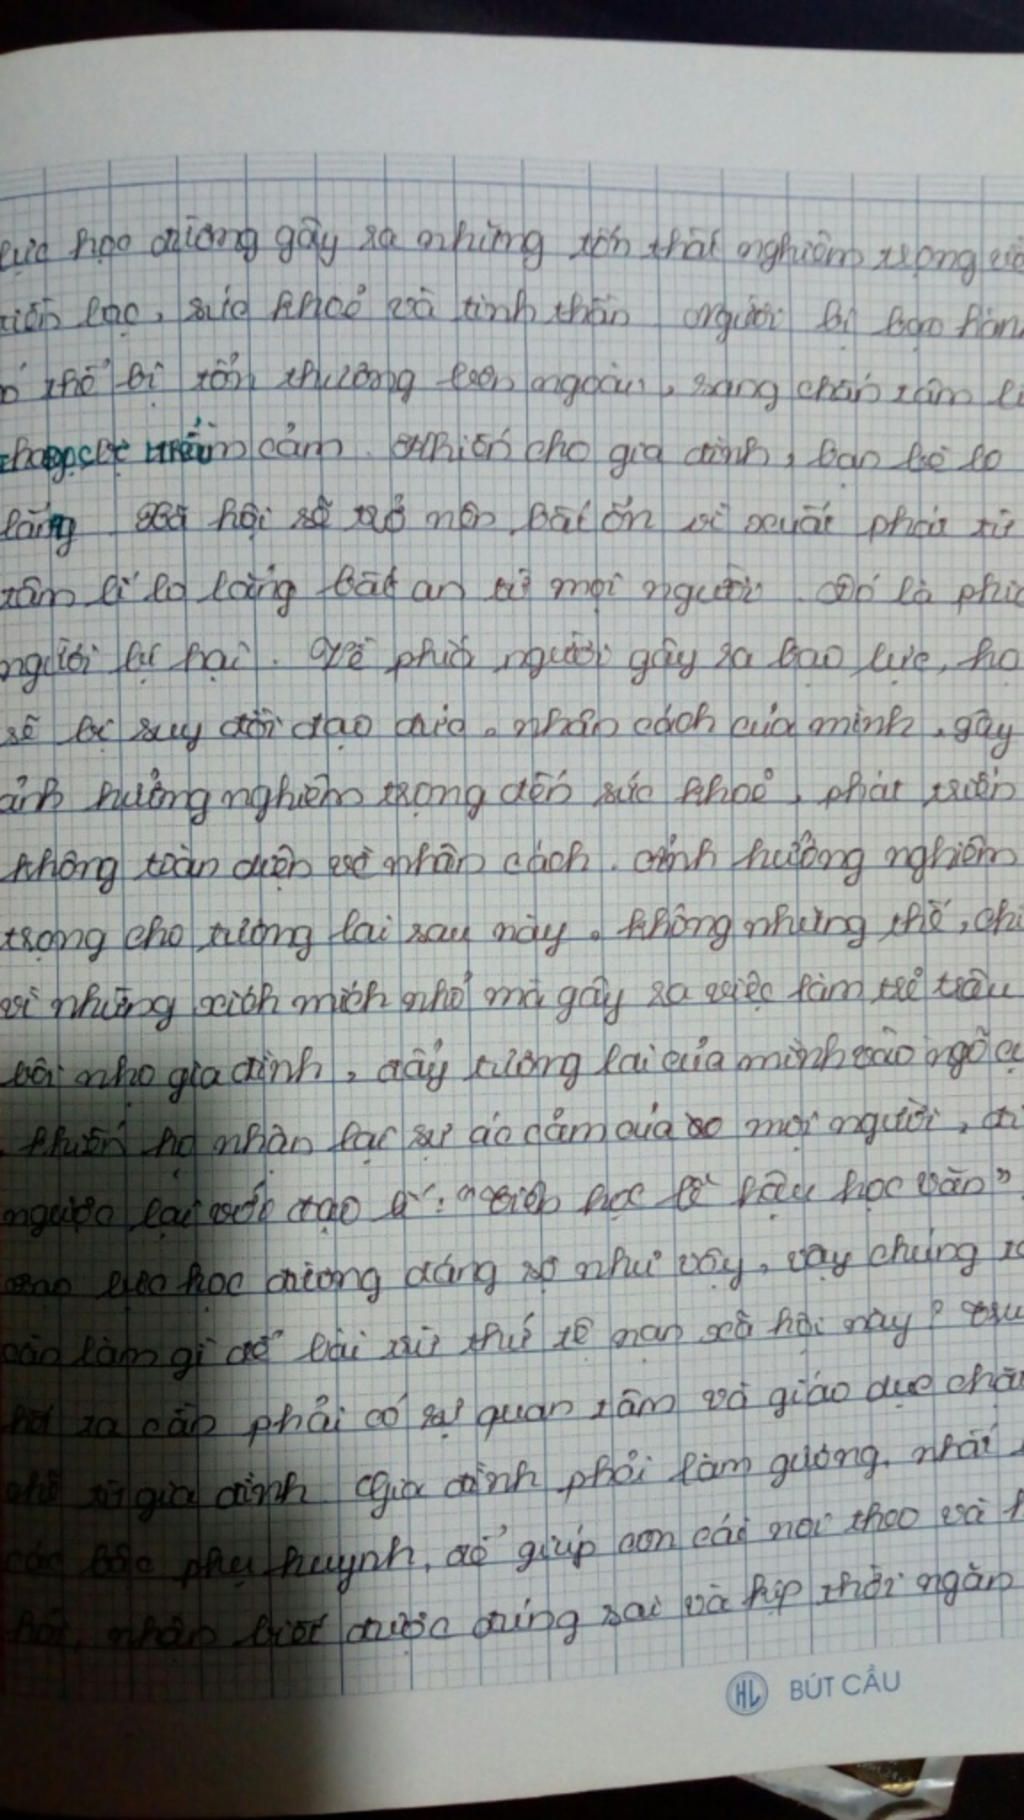 lực học đường gây ra những tổn thất nghiêm trọng về
tiền bạc, sức khoẻ và tinh thần người bị bạo hàn
thể bị tổn thương bên ngoài, sang chấn tâm lí
cảm. Khiến cho gia đình, bạn bè lo
lắng xã hội sẽ trở nên bất ổn vì xuất phát từ
tâm lí lo lắng bất an từ mọi người. Đó là phía
người bị hại. Về phía người gây ra bạo lực, họ
sẽ bị suy đồi đạo đức, nhân cách của mình, gây
ảnh hưởng nghiêm trọng đến sức khoẻ, phát triển
không toàn diện về nhân cách. ảnh hưởng nghiêm
trọng cho tương lai sau này. không những thế, chỉ
vì những xích mích nhỏ mà gây ra việc làm trẻ trâu
bôi nhọ gia đình, đẩy tương lai của mình vào ngõ cụ
khiến họ nhận lại sự ác cảm của mọi người, đi
ngược lại với đạo lí: "Tiên học lễ hậu học văn"
lực học đường đáng sợ như vậy, vậy chúng ta
cần làm gì để bài trừ thứ tệ nạn xã hội này? Trư
hết ta cần phải có sự quan tâm và giáo dục chặ
chẽ từ gia đình. Gia đình phải làm gương, nhất
các bậc phụ huynh, để giúp con cái noi theo và h
hỏi, nhận biết được đúng sai và kịp thời ngăn
HL BÚT CẦU